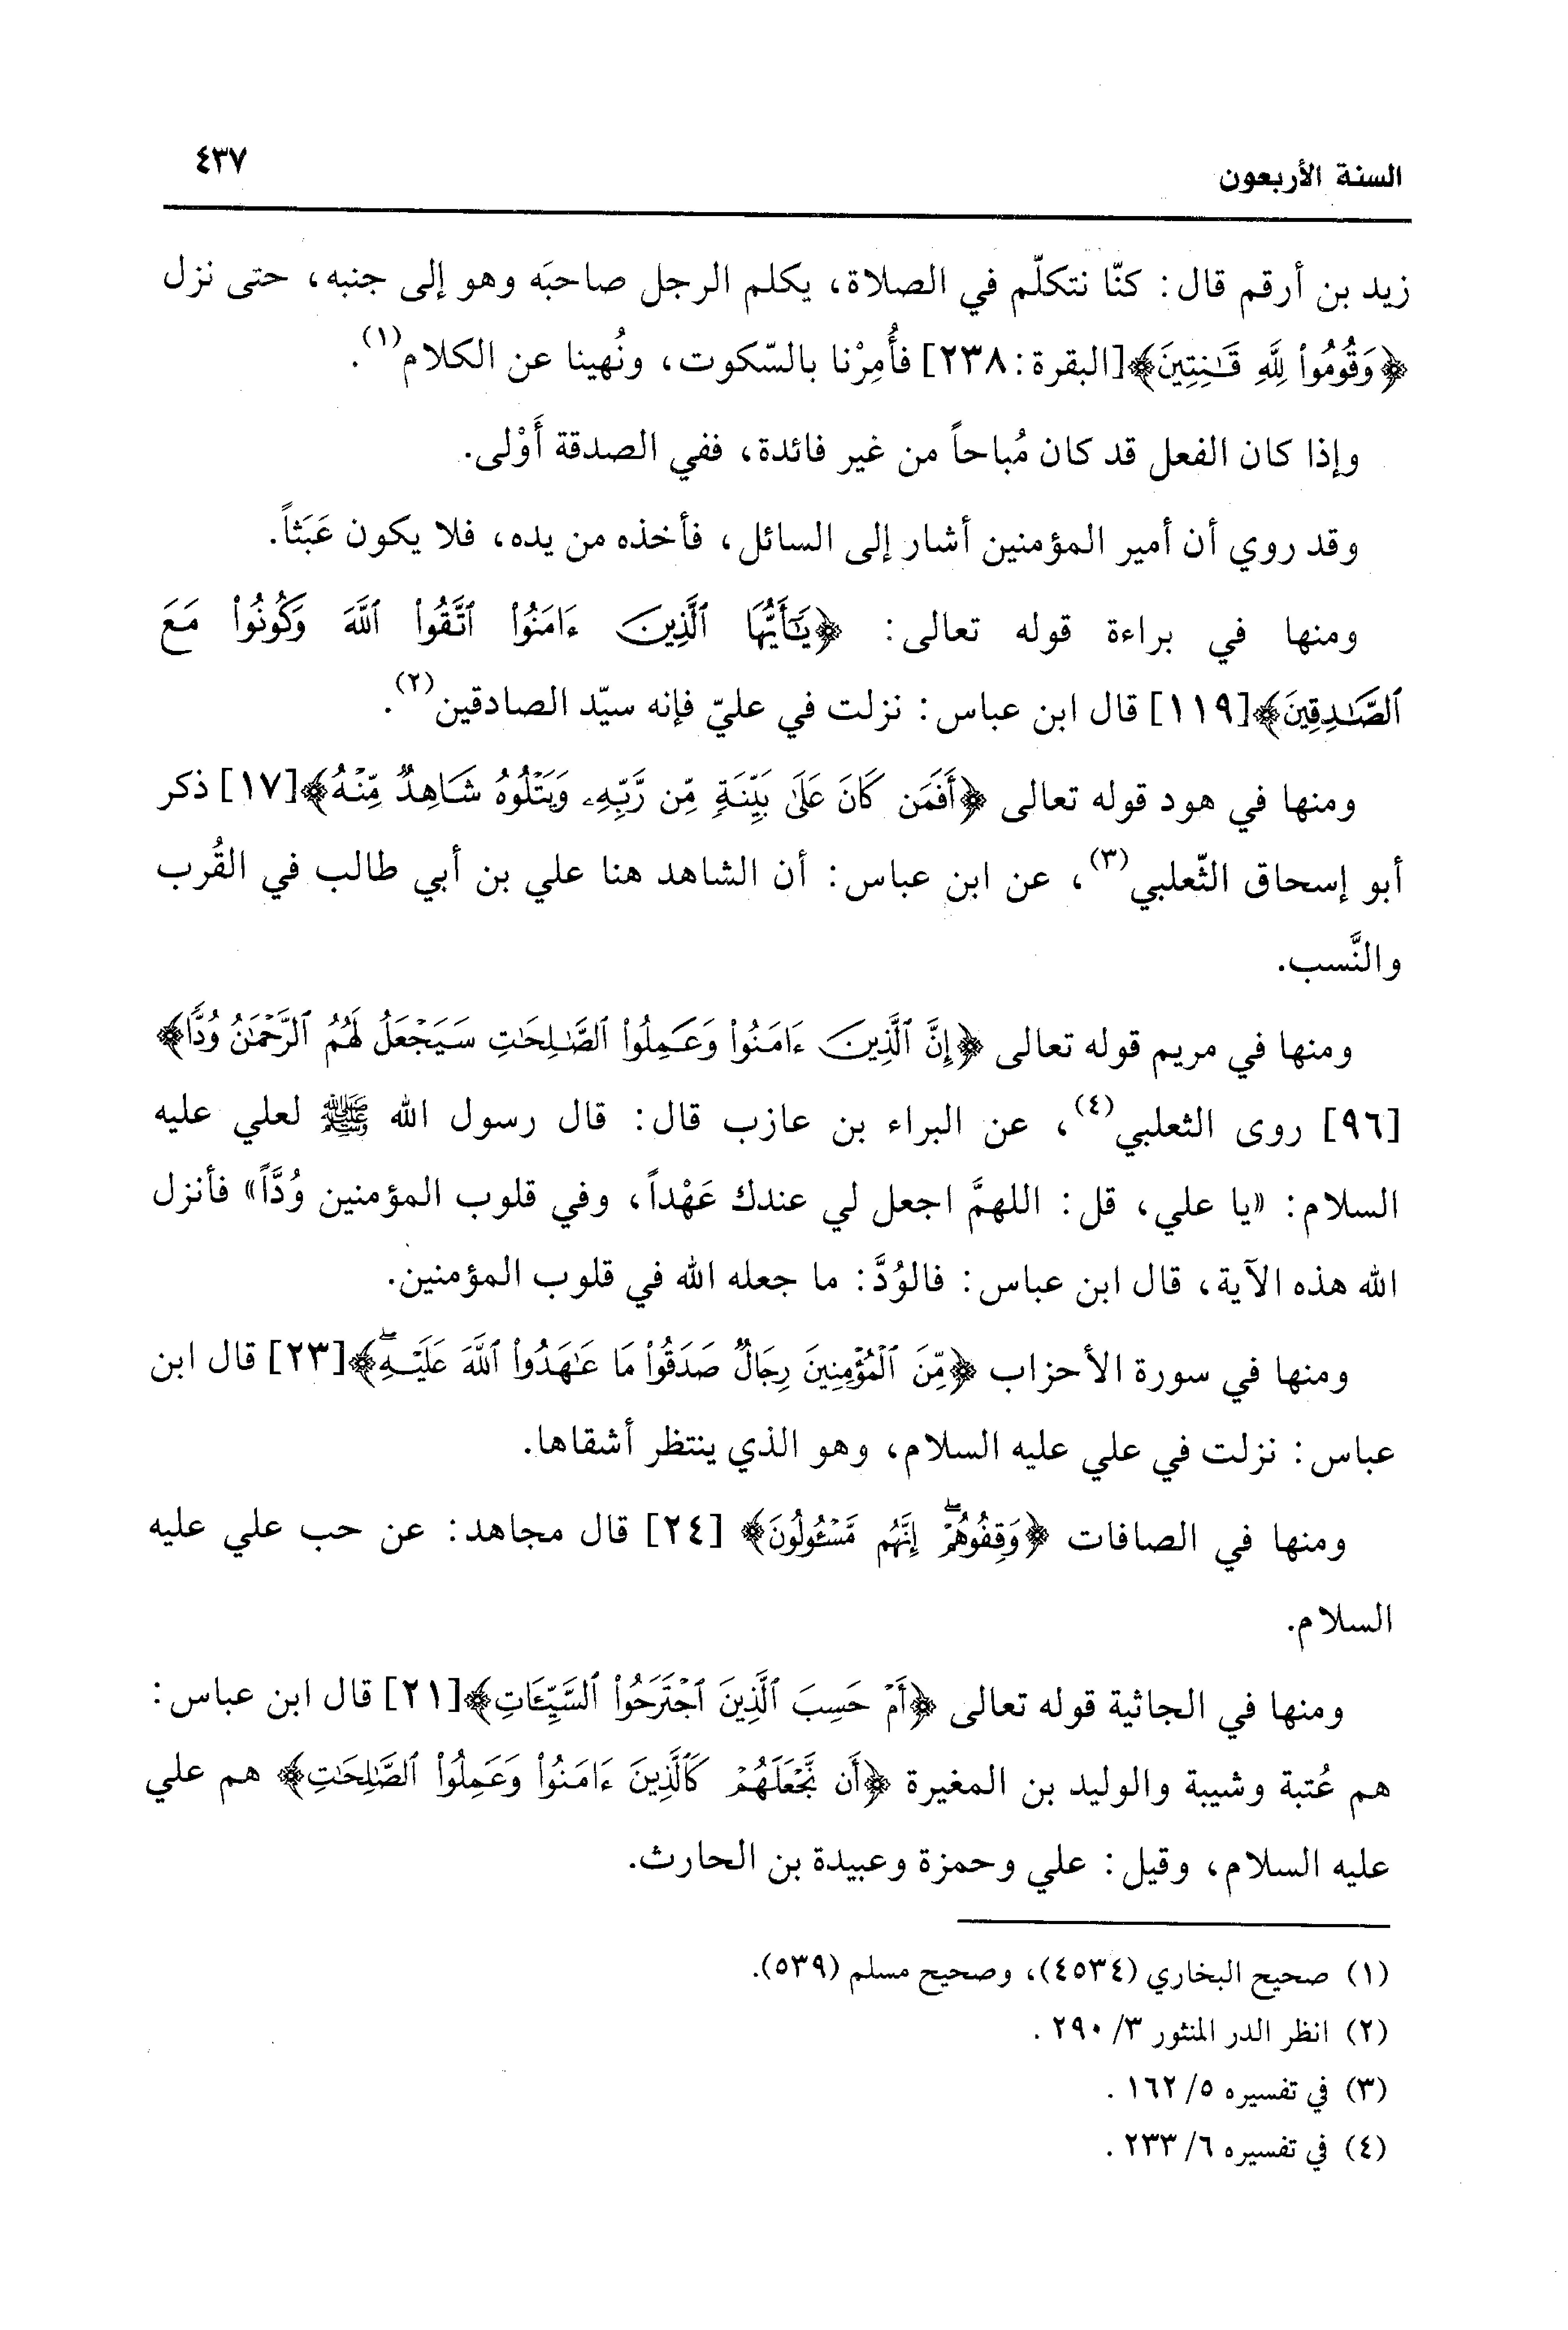 السنة الأربعون
٤٣٧
زيد بن أرقم قال: كنّا نتكلّم في الصلاة، يكلم الرجل صاحبَه وهو إلى جنبه، حتى نزل
﴿وَقُومُوا۟ لِلَّهِ قَٰنِتِينَ﴾[البقرة: ٢٣٨] فأُمِرْنا بالسّكوت، ونُهينا عن الكلام(١).
وإذا كان الفعل قد كان مُباحاً من غير فائدة، ففي الصدقة أَوْلى.
وقد روي أن أمير المؤمنين أشار إلى السائل، فأخذه من يده، فلا يكون عَبَثاً.
ومنها في براءة قوله تعالى: ﴿يَٰٓأَيُّهَا ٱلَّذِينَ ءَامَنُوا۟ ٱتَّقُوا۟ ٱللَّهَ وَكُونُوا۟ مَعَ
ٱلصَّٰدِقِينَ﴾[١١٩] قال ابن عباس: نزلت في عليّ فإنه سيّد الصادقين(٢).
ومنها في هود قوله تعالى ﴿أَفَمَن كَانَ عَلَىٰ بَيِّنَةٍ مِّن رَّبِّهِۦ وَيَتْلُوهُ شَاهِدٌ مِّنْهُ﴾[١٧] ذكر
أبو إسحاق الثّعلبي(٣)، عن ابن عباس: أن الشاهد هنا علي بن أبي طالب في القُرب
والنَّسب.
ومنها في مريم قوله تعالى ﴿إِنَّ ٱلَّذِينَ ءَامَنُوا۟ وَعَمِلُوا۟ ٱلصَّٰلِحَٰتِ سَيَجْعَلُ لَهُمُ ٱلرَّحْمَٰنُ وُدًّا﴾
[٩٦] روى الثعلبي(٤)، عن البراء بن عازب قال: قال رسول الله ﷺ لعلي عليه
السلام: «يا علي، قل: اللهمَّ اجعل لي عندك عَهْداً، وفي قلوب المؤمنين وُدَّاً» فأنزل
الله هذه الآية، قال ابن عباس: فالوُدَّ: ما جعله الله في قلوب المؤمنين.
ومنها في سورة الأحزاب ﴿مِّنَ ٱلْمُؤْمِنِينَ رِجَالٌ صَدَقُوا۟ مَا عَٰهَدُوا۟ ٱللَّهَ عَلَيْهِۖ﴾[٢٣] قال ابن
عباس: نزلت في علي عليه السلام، وهو الذي ينتظر أشقاها.
ومنها في الصافات ﴿وَقِفُوهُمْۖ إِنَّهُم مَّسْـُٔولُونَ﴾ [٢٤] قال مجاهد: عن حب علي عليه
السلام.
ومنها في الجاثية قوله تعالى ﴿أَمْ حَسِبَ ٱلَّذِينَ ٱجْتَرَحُوا۟ ٱلسَّيِّـَٔاتِ﴾[٢١] قال ابن عباس:
هم عُتبة وشيبة والوليد بن المغيرة ﴿أَن نَّجْعَلَهُمْ كَٱلَّذِينَ ءَامَنُوا۟ وَعَمِلُوا۟ ٱلصَّٰلِحَٰتِ﴾ هم علي
عليه السلام، وقيل: علي وحمزة وعبيدة بن الحارث.
(١) صحيح البخاري (٤٥٣٤)، وصحيح مسلم (٥٣٩).
(٢) انظر الدر المنثور ٣/ ٢٩٠ .
(٣) في تفسيره ٥/ ١٦٢ .
(٤) في تفسيره ٦/ ٢٣٣ .